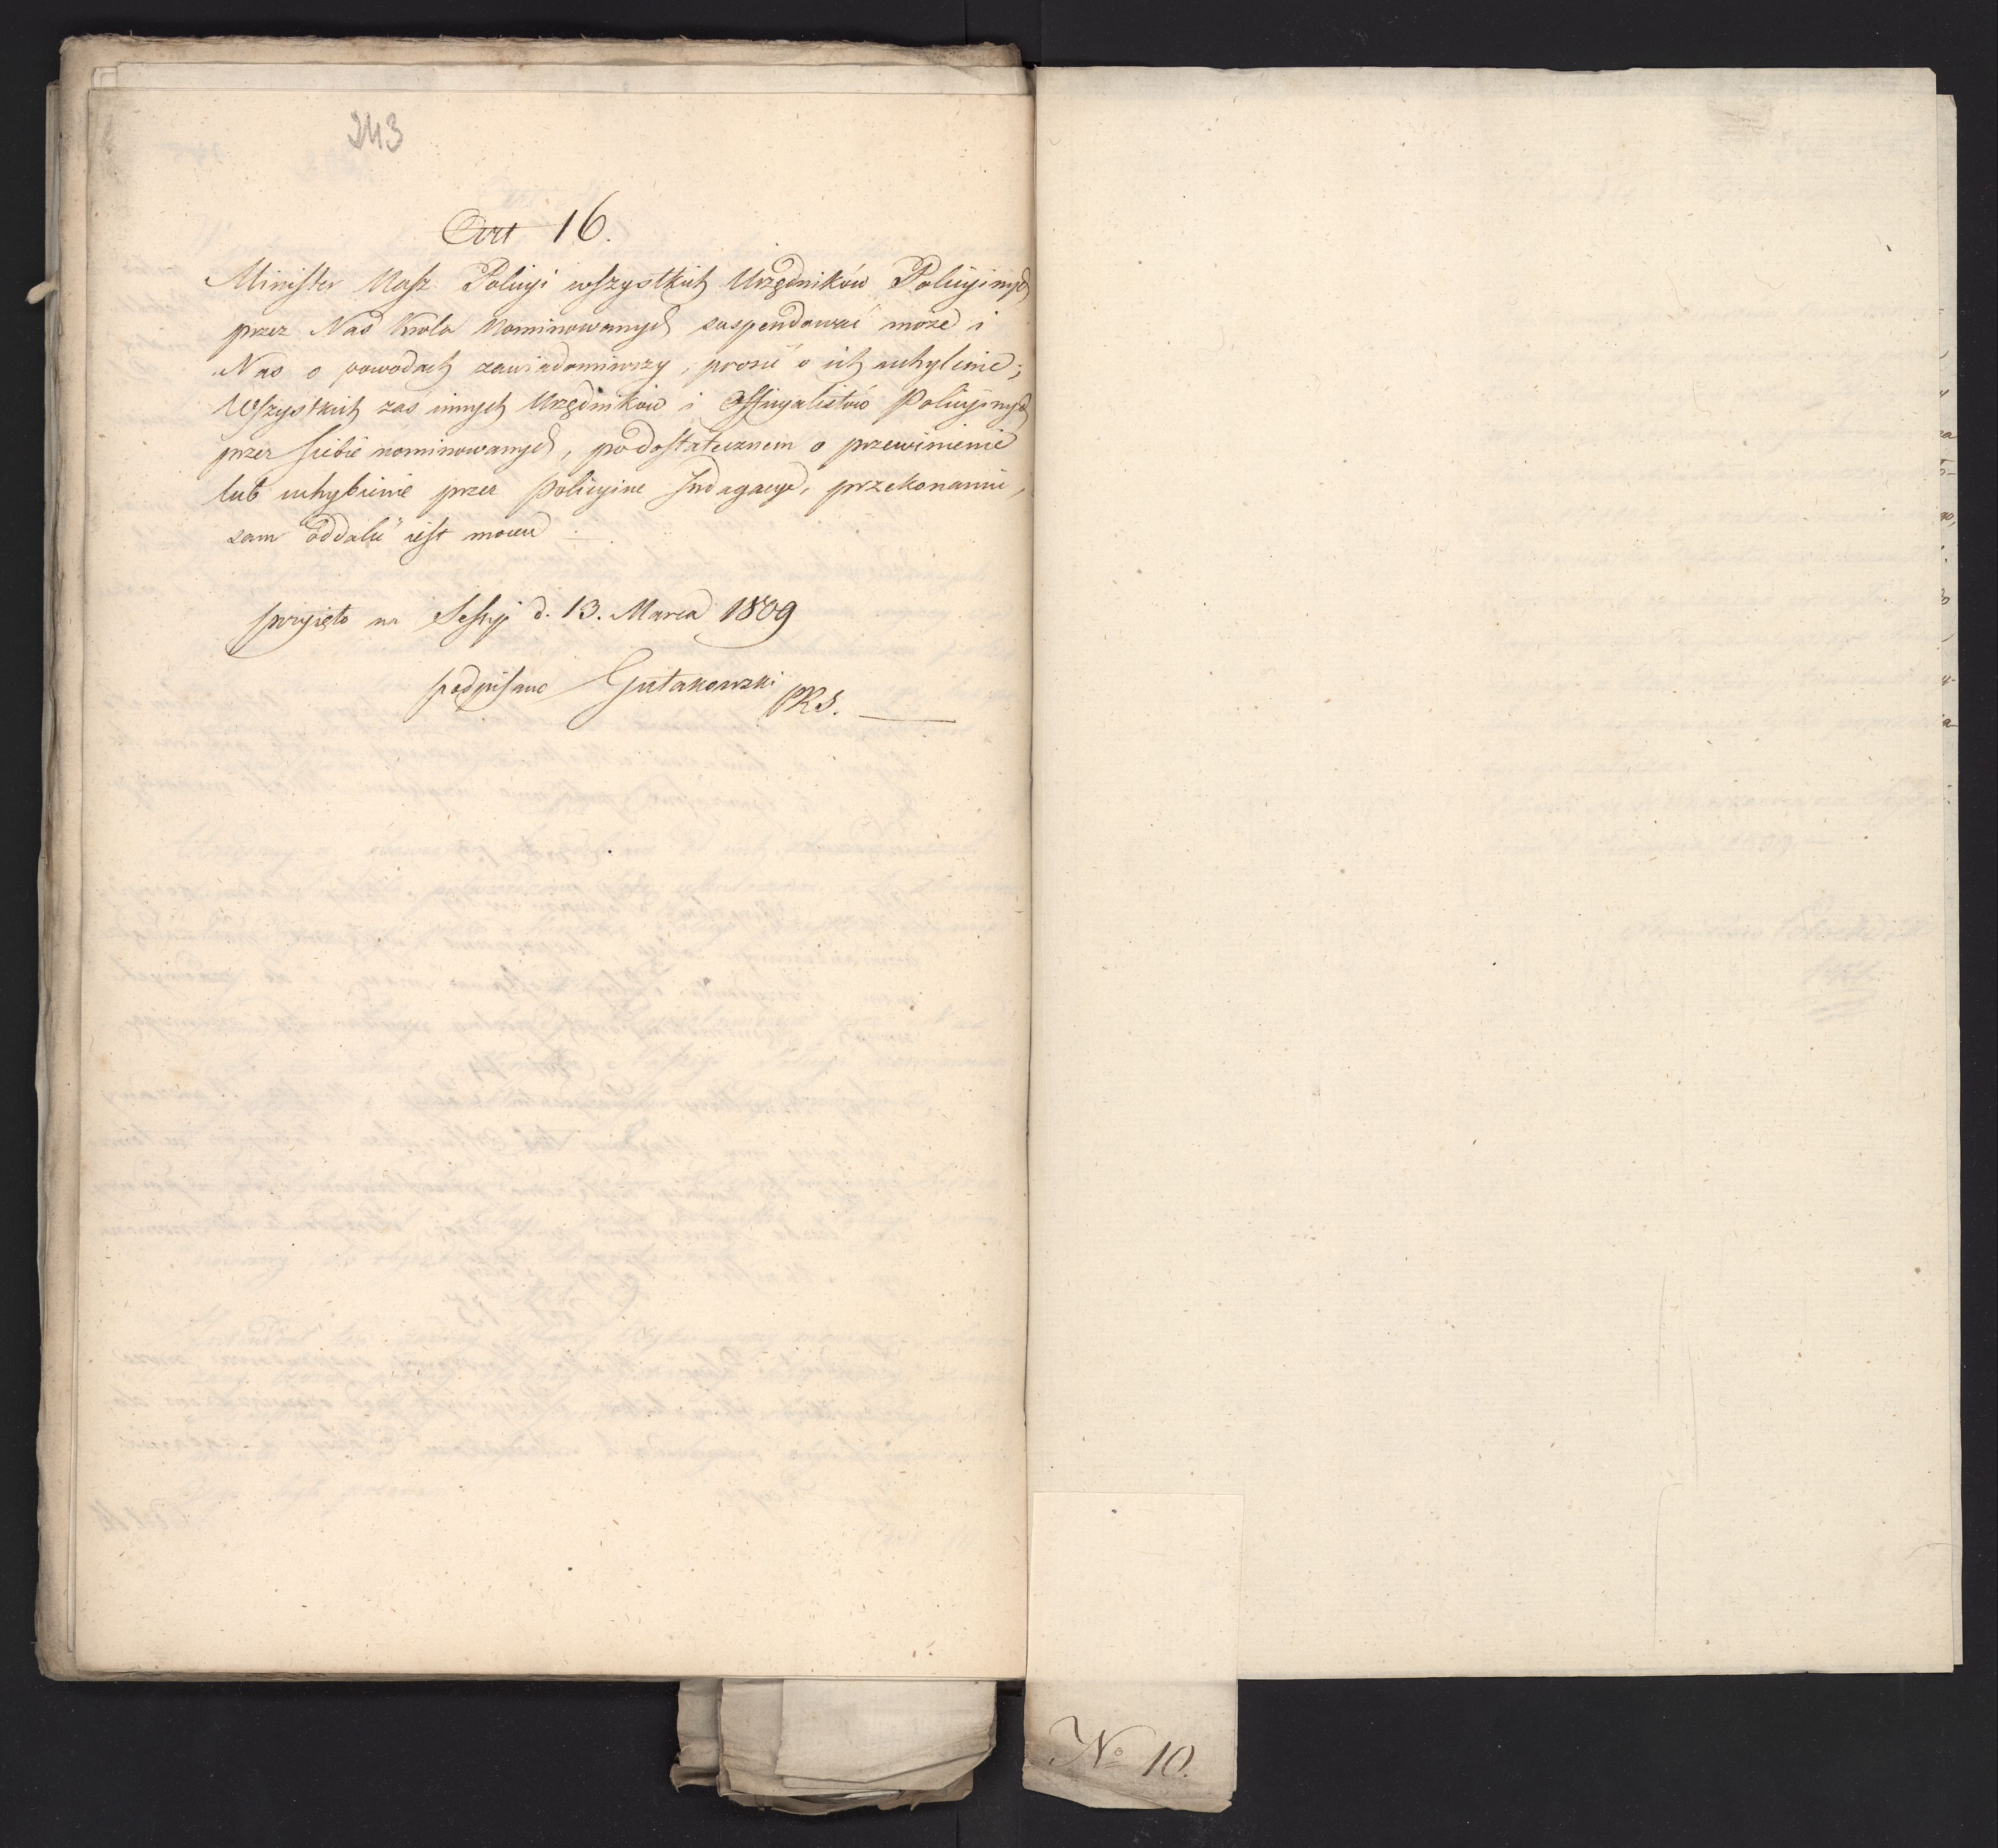 243
Art 16.
Minister Nasz Policyi wszystkich Urzędników Policyinych
przez Nas Króla Nominowanych suspendować może i
Nas o powodach zawiadomiwszy, prosić o ich uchylenie;
Wszystkich zas innych Urzędników i Officyalistów Policyinych
przez siebie nominowanych, po dostatecznem o przewinienie
lub uchybienie przez Policyine Indagacye, przekonaniu,
sam oddalić iest mocen
przyięto na Sessyi d. 13. Marca 1809
podpisano Gutakowski PRS.
No 10.